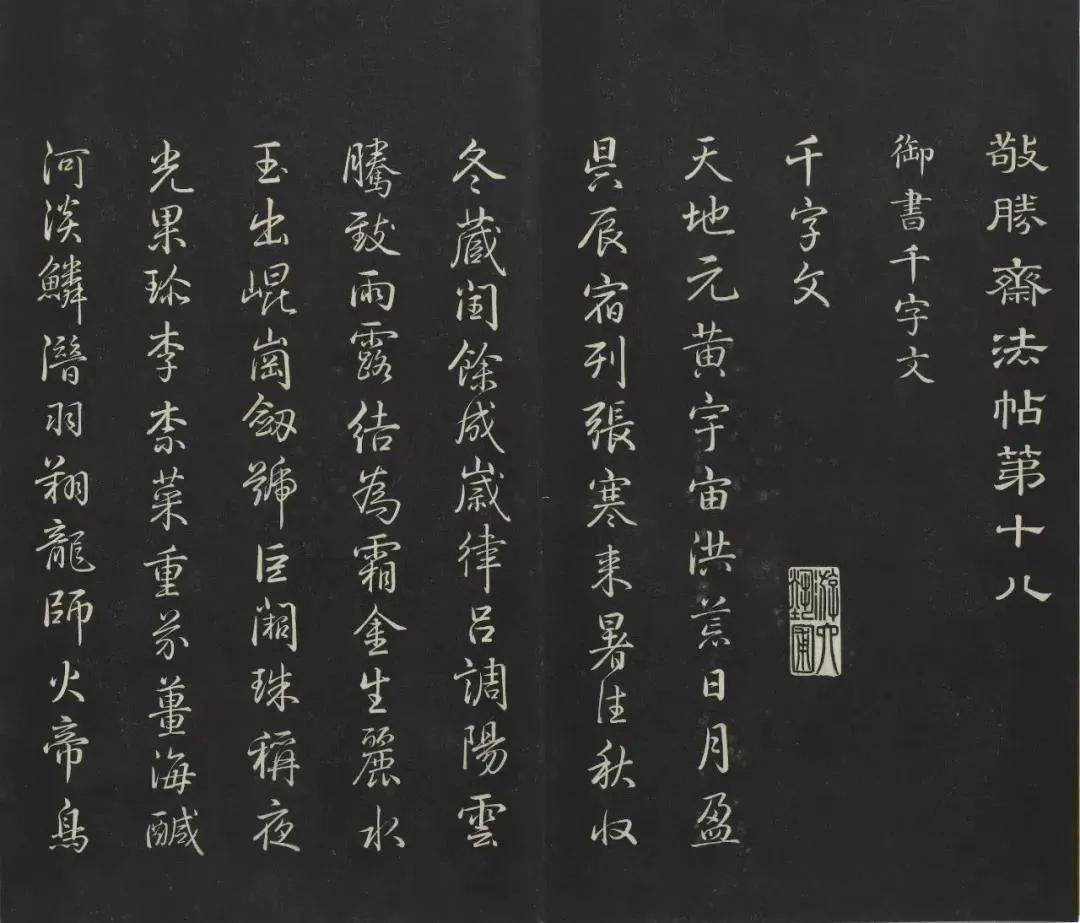 敬勝齋法帖第十八
御書千字文
千字文
游六藝圃
天地元黄宇宙洪荒日月盈
昃辰宿列張寒来暑往秋收
冬藏閏餘成歲律吕調陽雲
騰致雨露結為霜金生麗水
玉出崐崗劒號巨闕珠稱夜
光果珍李柰菜重芥薑海醎
河淡鱗潛羽翔龍師火帝鳥